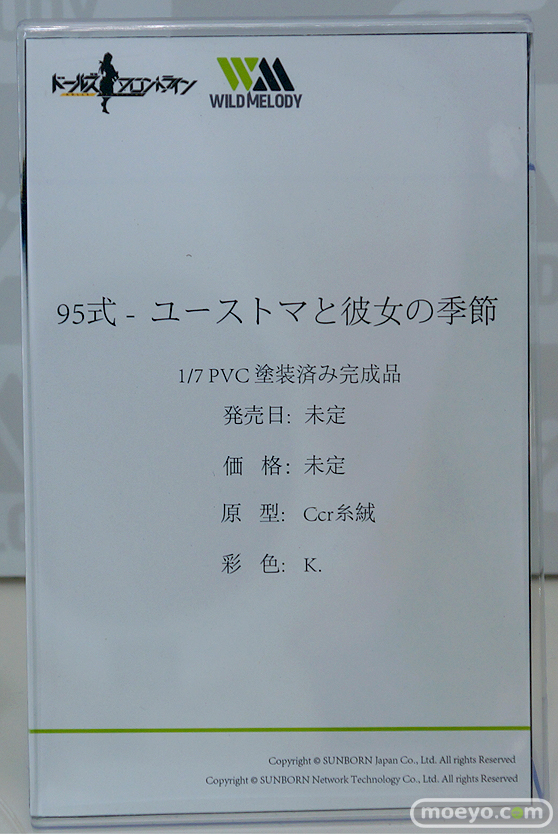 ドールズフロントライン
WILD MELODY
95式 - ユーストマと彼女の季節
1/7 PVC 塗装済み完成品
発売日: 未定
価 格: 未定
原 型: Ccr糸絨
彩 色: K.
Copyright © SUNBORN Japan Co., Ltd. All rights Reserved
Copyright © SUNBORN Network Technology Co., Ltd. All rights Reserved
moeyo.com